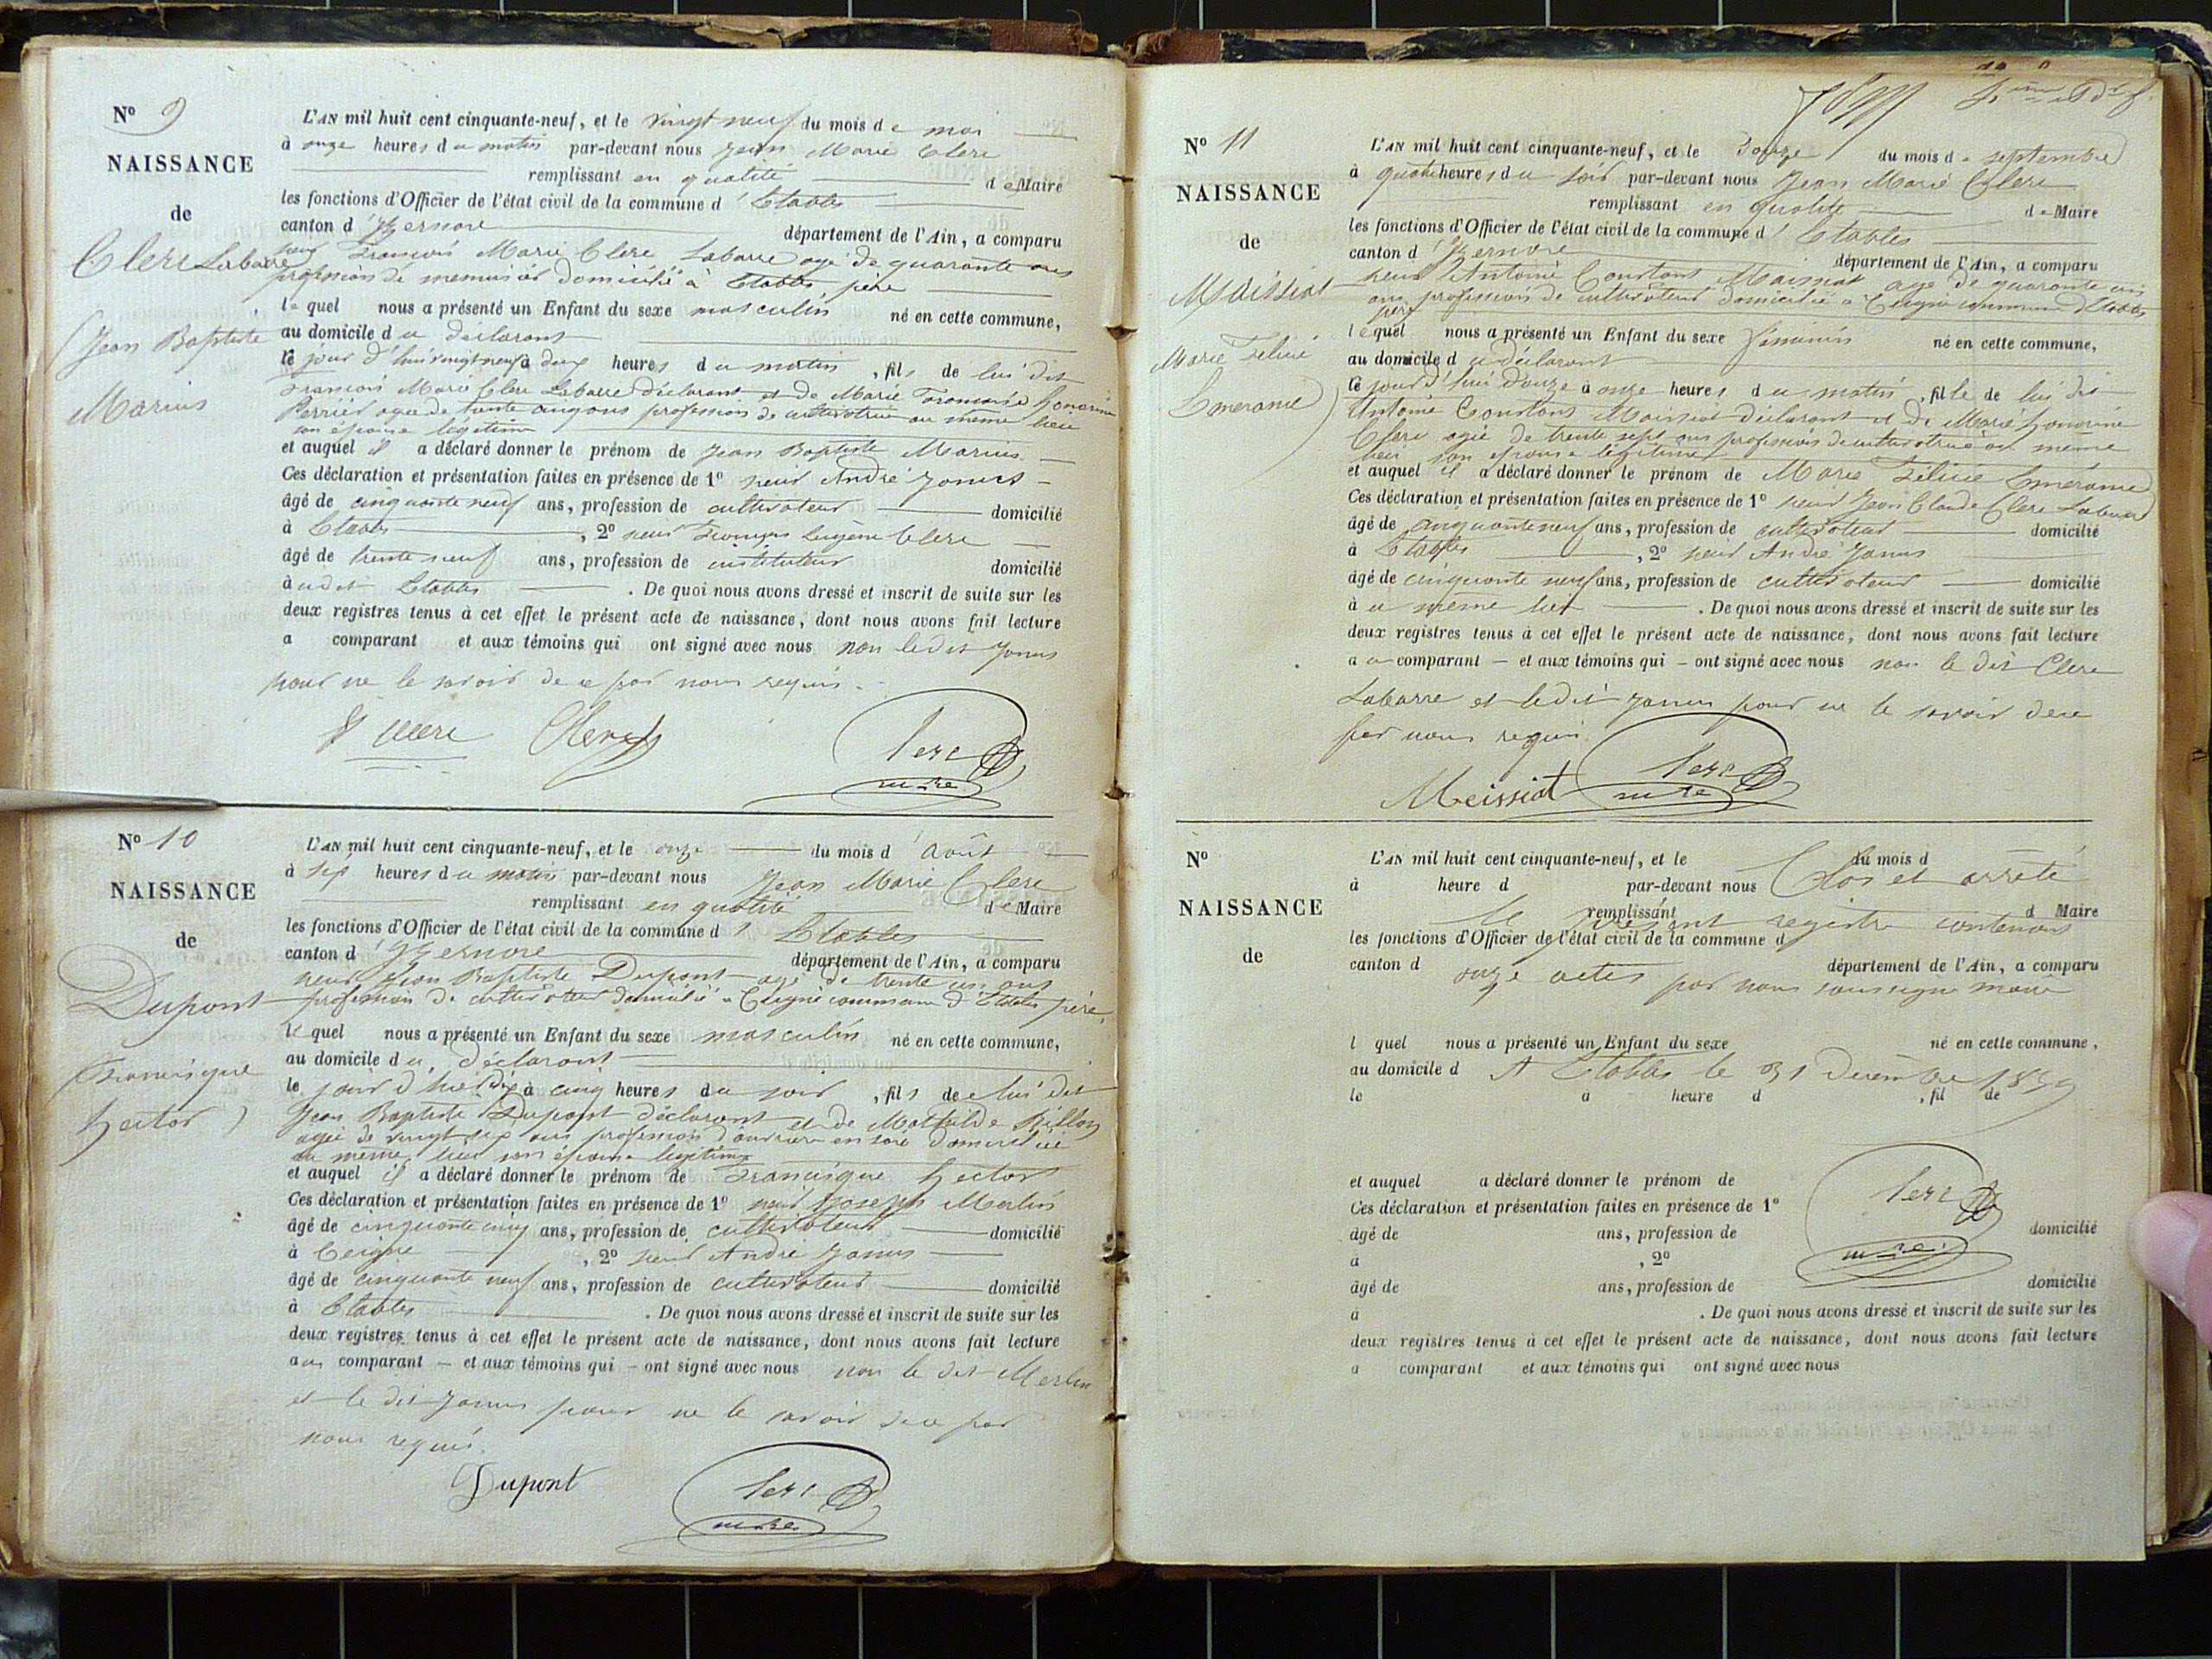 N° 9
NAISSANCE
de
Clerc Labarre
Jean Baptiste
Marius
L'AN mil huit cent cinquante-neuf, et le vingt neuf du mois de mai
à onze heures du matin par-devant nous Jean Marie Clerc
remplissant en qualité de Maire
les fonctions d'Officier de l'état civil de la commune d'Etables
canton d'Izernore département de l'Ain, a comparu
sieur François Marie Clerc Labarre agé de quarante ans
profession de menuisier domicilié à Etables père
lequel nous a présenté un Enfant du sexe masculin né en cette commune,
au domicile du déclarant
le jour d'hui vingt neuf à deux heures du matin, fils de lui dit
François Marie Clerc Labarre déclarant et de Marie Françoise honorine
Perrier agée de trente cinq ans profession de cultivatrice au même lieu
son épouse légitime
et auquel il a déclaré donner le prénom de Jean Baptiste Marius
Ces déclaration et présentation faites en présence de 1° sieur André Janus
âgé de cinquante neuf ans, profession de cultivateur domicilié
à Etables, 2° sieur François Eugène Clerc
âgé de trente neuf ans, profession de instituteur domicilié
à udit Etables. De quoi nous avons dressé et inscrit de suite sur les
deux registres tenus à cet effet le présent acte de naissance, dont nous avons fait lecture
a comparant et aux témoins qui ont signé avec nous non ledit Janus
pour ne le savoir de ce par nous requis.
Clerc Clerc
Clerc
maire
N° 10
NAISSANCE
de
Dupont
Francisque
hector
L'AN mil huit cent cinquante-neuf, et le onze du mois d'Août
à six heures du matin par-devant nous Jean Marie Clerc
remplissant en qualité de Maire
les fonctions d'Officier de l'état civil de la commune d'Etables
canton d'Izernore département de l'Ain, a comparu
sieur Jean Baptiste Dupont agé de trente ans
profession de cultivateur domicilié à Ceignes commune d'Etables père,
lequel nous a présenté un Enfant du sexe masculin né en cette commune,
au domicile du déclarant
le jour d'hier dix à cinq heures du soir, fils de lui dit
Jean Baptiste Dupont déclarant et de Mathilde
agée de vingt six ans profession d'ouvrière en soie domiciliée
au même lieu son épouse légitime
et auquel il a déclaré donner le prénom de Francisque hector
Ces déclaration et présentation faites en présence de 1° sieur Joseph Merlin
âgé de cinquante cinq ans, profession de cultivateur domicilié
à Ceigne, 2° sieur André Janus
âgé de cinquante neuf ans, profession de cultivateur domicilié
à Etables. De quoi nous avons dressé et inscrit de suite sur les
deux registres tenus à cet effet le présent acte de naissance, dont nous avons fait lecture
au comparant – et aux témoins qui – ont signé avec nous non le dit Merlin
et le dit Janus pour ne le savoir de ce par
nous requis.
Dupont
Clerc
maire
N° 11
NAISSANCE
de
Maissiat
Marie Félicie
Emerance
L'AN mil huit cent cinquante-neuf, et le douze du mois de septembre
à quatre heures du soir par-devant nous Jean Marie Clerc
remplissant en qualité de Maire
les fonctions d'Officier de l'état civil de la commune d'Etables
canton d'Izernore département de l'Ain, a comparu
sieur Antoine Constant Maissiat agé de quarante
ans profession de cultivateur domicilié à Ceigne commune d'Etables
père
lequel nous a présenté un Enfant du sexe féminin né en cette commune,
au domicile du déclarant
le jour d'hui douze à onze heures du matin, fille de lui dit
Antoine Constant Maissiat déclarant et de Marie honorine
Clerc agée de trente sept ans profession de cultivatrice au même
lieu son épouse légitime
et auquel il a déclaré donner le prénom de Marie Félicie Emérance
Ces déclaration et présentation faites en présence de 1° sieur Jean Claude Clerc Labarre
âgé de cinquante neuf ans, profession de cultivateur domicilié
à Etables, 2° sieur André Janus
âgé de cinquante neuf ans, profession de cultivateur domicilié
à u même lieu. De quoi nous avons dressé et inscrit de suite sur les
deux registres tenus à cet effet le présent acte de naissance, dont nous avons fait lecture
au comparant – et aux témoins qui – ont signé avec nous non le dit Clerc
Labarre et ledit Janus pour ne le savoir de ce
par nous requis.
Meissiat
Clerc
maire
N°
NAISSANCE
de
L'AN mil huit cent cinquante-neuf, et le du mois d
à heure d par-devant nous Clos et arrêté
remplissant d Maire
le présent registre contenant
les fonctions d'Officier de l'état civil de la commune d
canton d département de l'Ain, a comparu
onze actes par nous soussigné maire
l quel nous a présenté un Enfant du sexe né en cette commune,
au domicile d
A Etables le 31 Décembre 1859
le à heure d , fil de
et auquel a déclaré donner le prénom de
Ces déclaration et présentation faites en présence de 1°
âgé de ans, profession de domicilié
à , 2°
âgé de ans, profession de domicilié
à . De quoi nous avons dressé et inscrit de suite sur les
deux registres tenus à cet effet le présent acte de naissance, dont nous avons fait lecture
a comparant et aux témoins qui ont signé avec nous
Clerc
maire